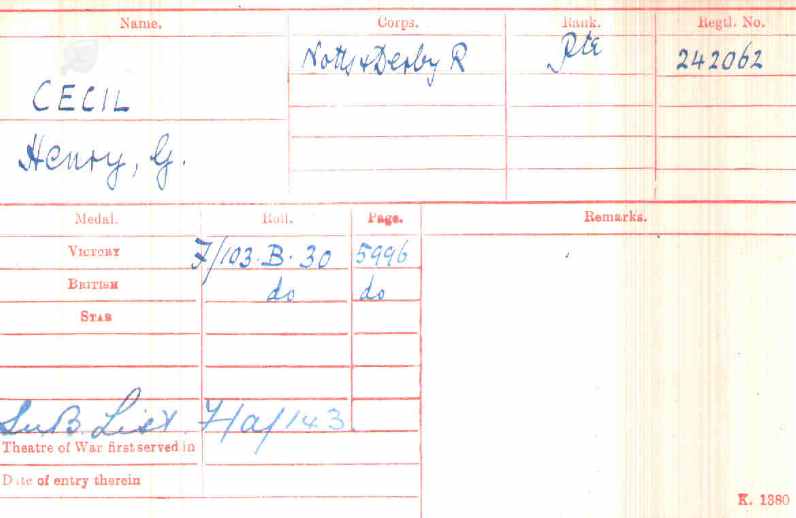 Name. Corps. Rank. Regtl. No.
Notts & Derby R Pte 242062
CECIL
Henry, G.
Medal. Roll. Page. Remarks.
VICTORY F/103.B.30 5996
BRITISH do do
STAR
List F/a/143
Theatre of War first served in
Date of entry therein
K. 1380